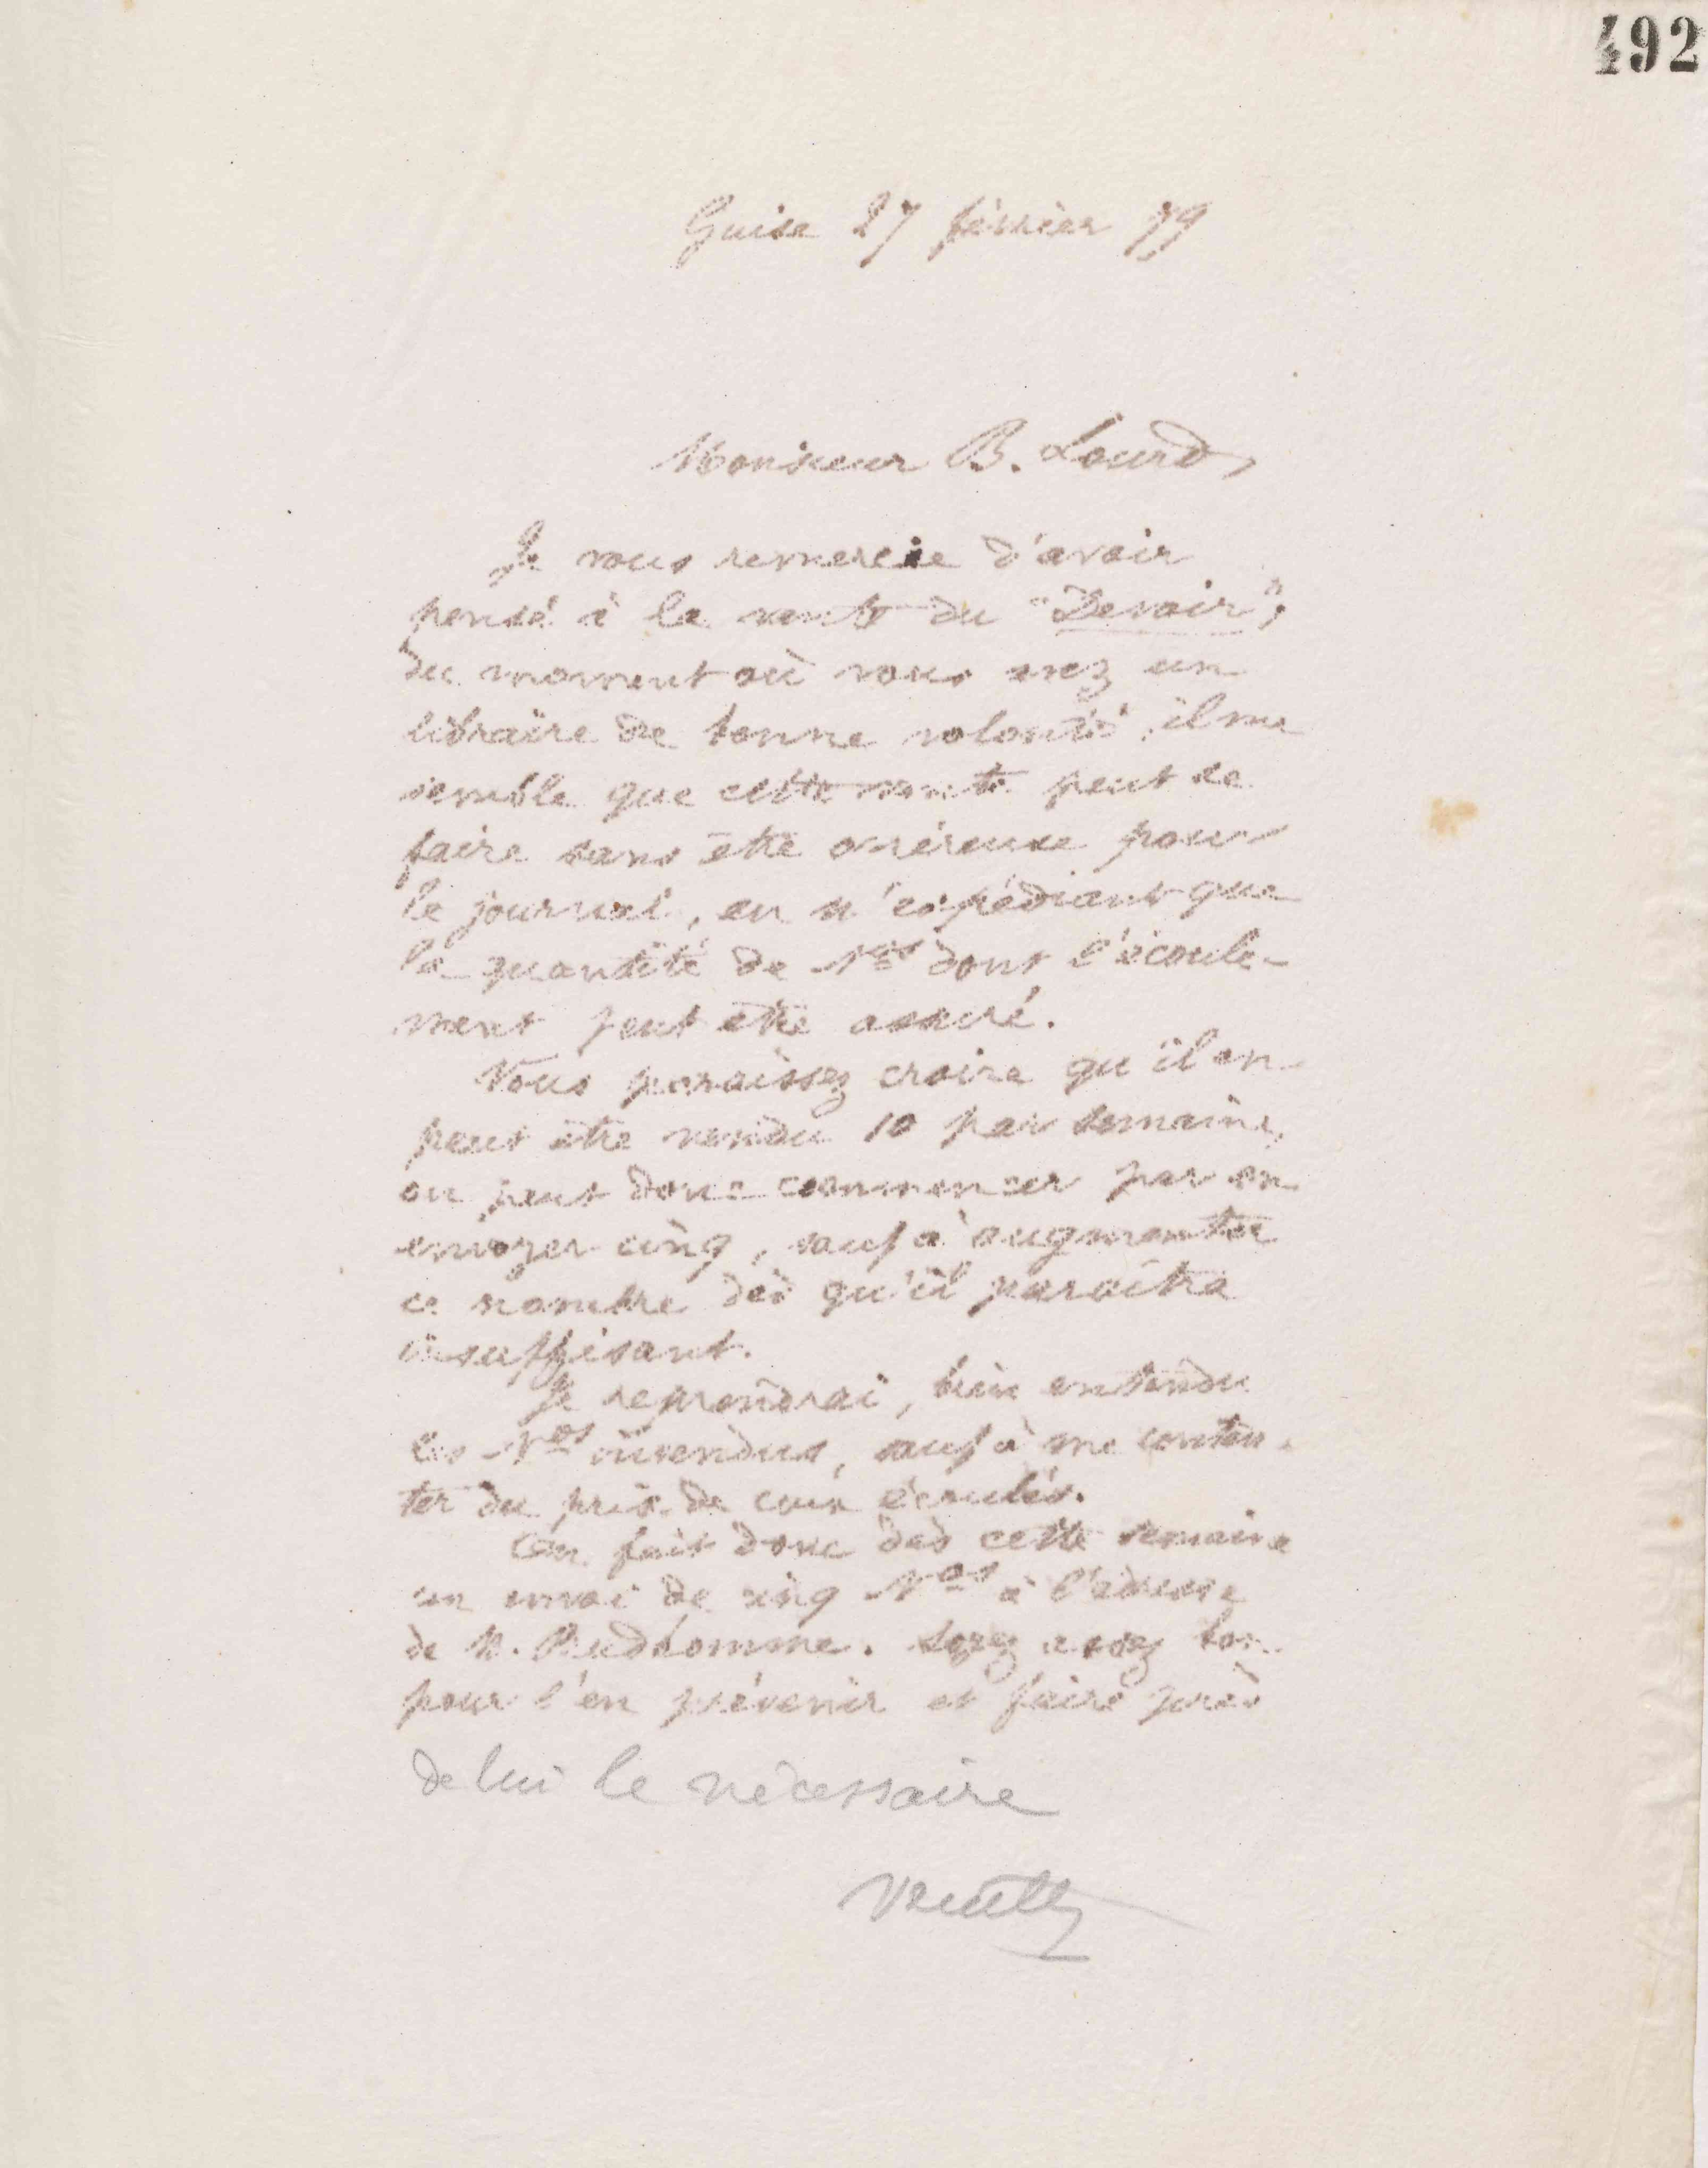 492
Guise 27 février 79
Monsieur B. Lourd,
Je vous remercie d'avoir
pensé à la vente du "Devoir";
du moment où vous avez un
libraire de bonne volonté, il me
semble que cette vente peut se
faire sans être onéreuse pour
le journal, en n'expédiant que
la quantité de Nos dont l'écoule-
ment peut être assuré.
Vous paraissez croire qu'il en
peut être vendu 10 par semaine,
on peut donc commencer par en
envoyer cinq, sauf à augmenter
ce nombre dès qu'il paraîtra
insuffisant.
Je reprendrai, bien entendu
les Nos invendus, sauf à me conten-
ter du prix de ceux écoulés.
On fait donc dès cette semaine
un envoi de cinq Nos à l'adresse
de M. Prudhomme. Soyez assez bon
pour l'en prévenir et faire près
de lui le nécessaire